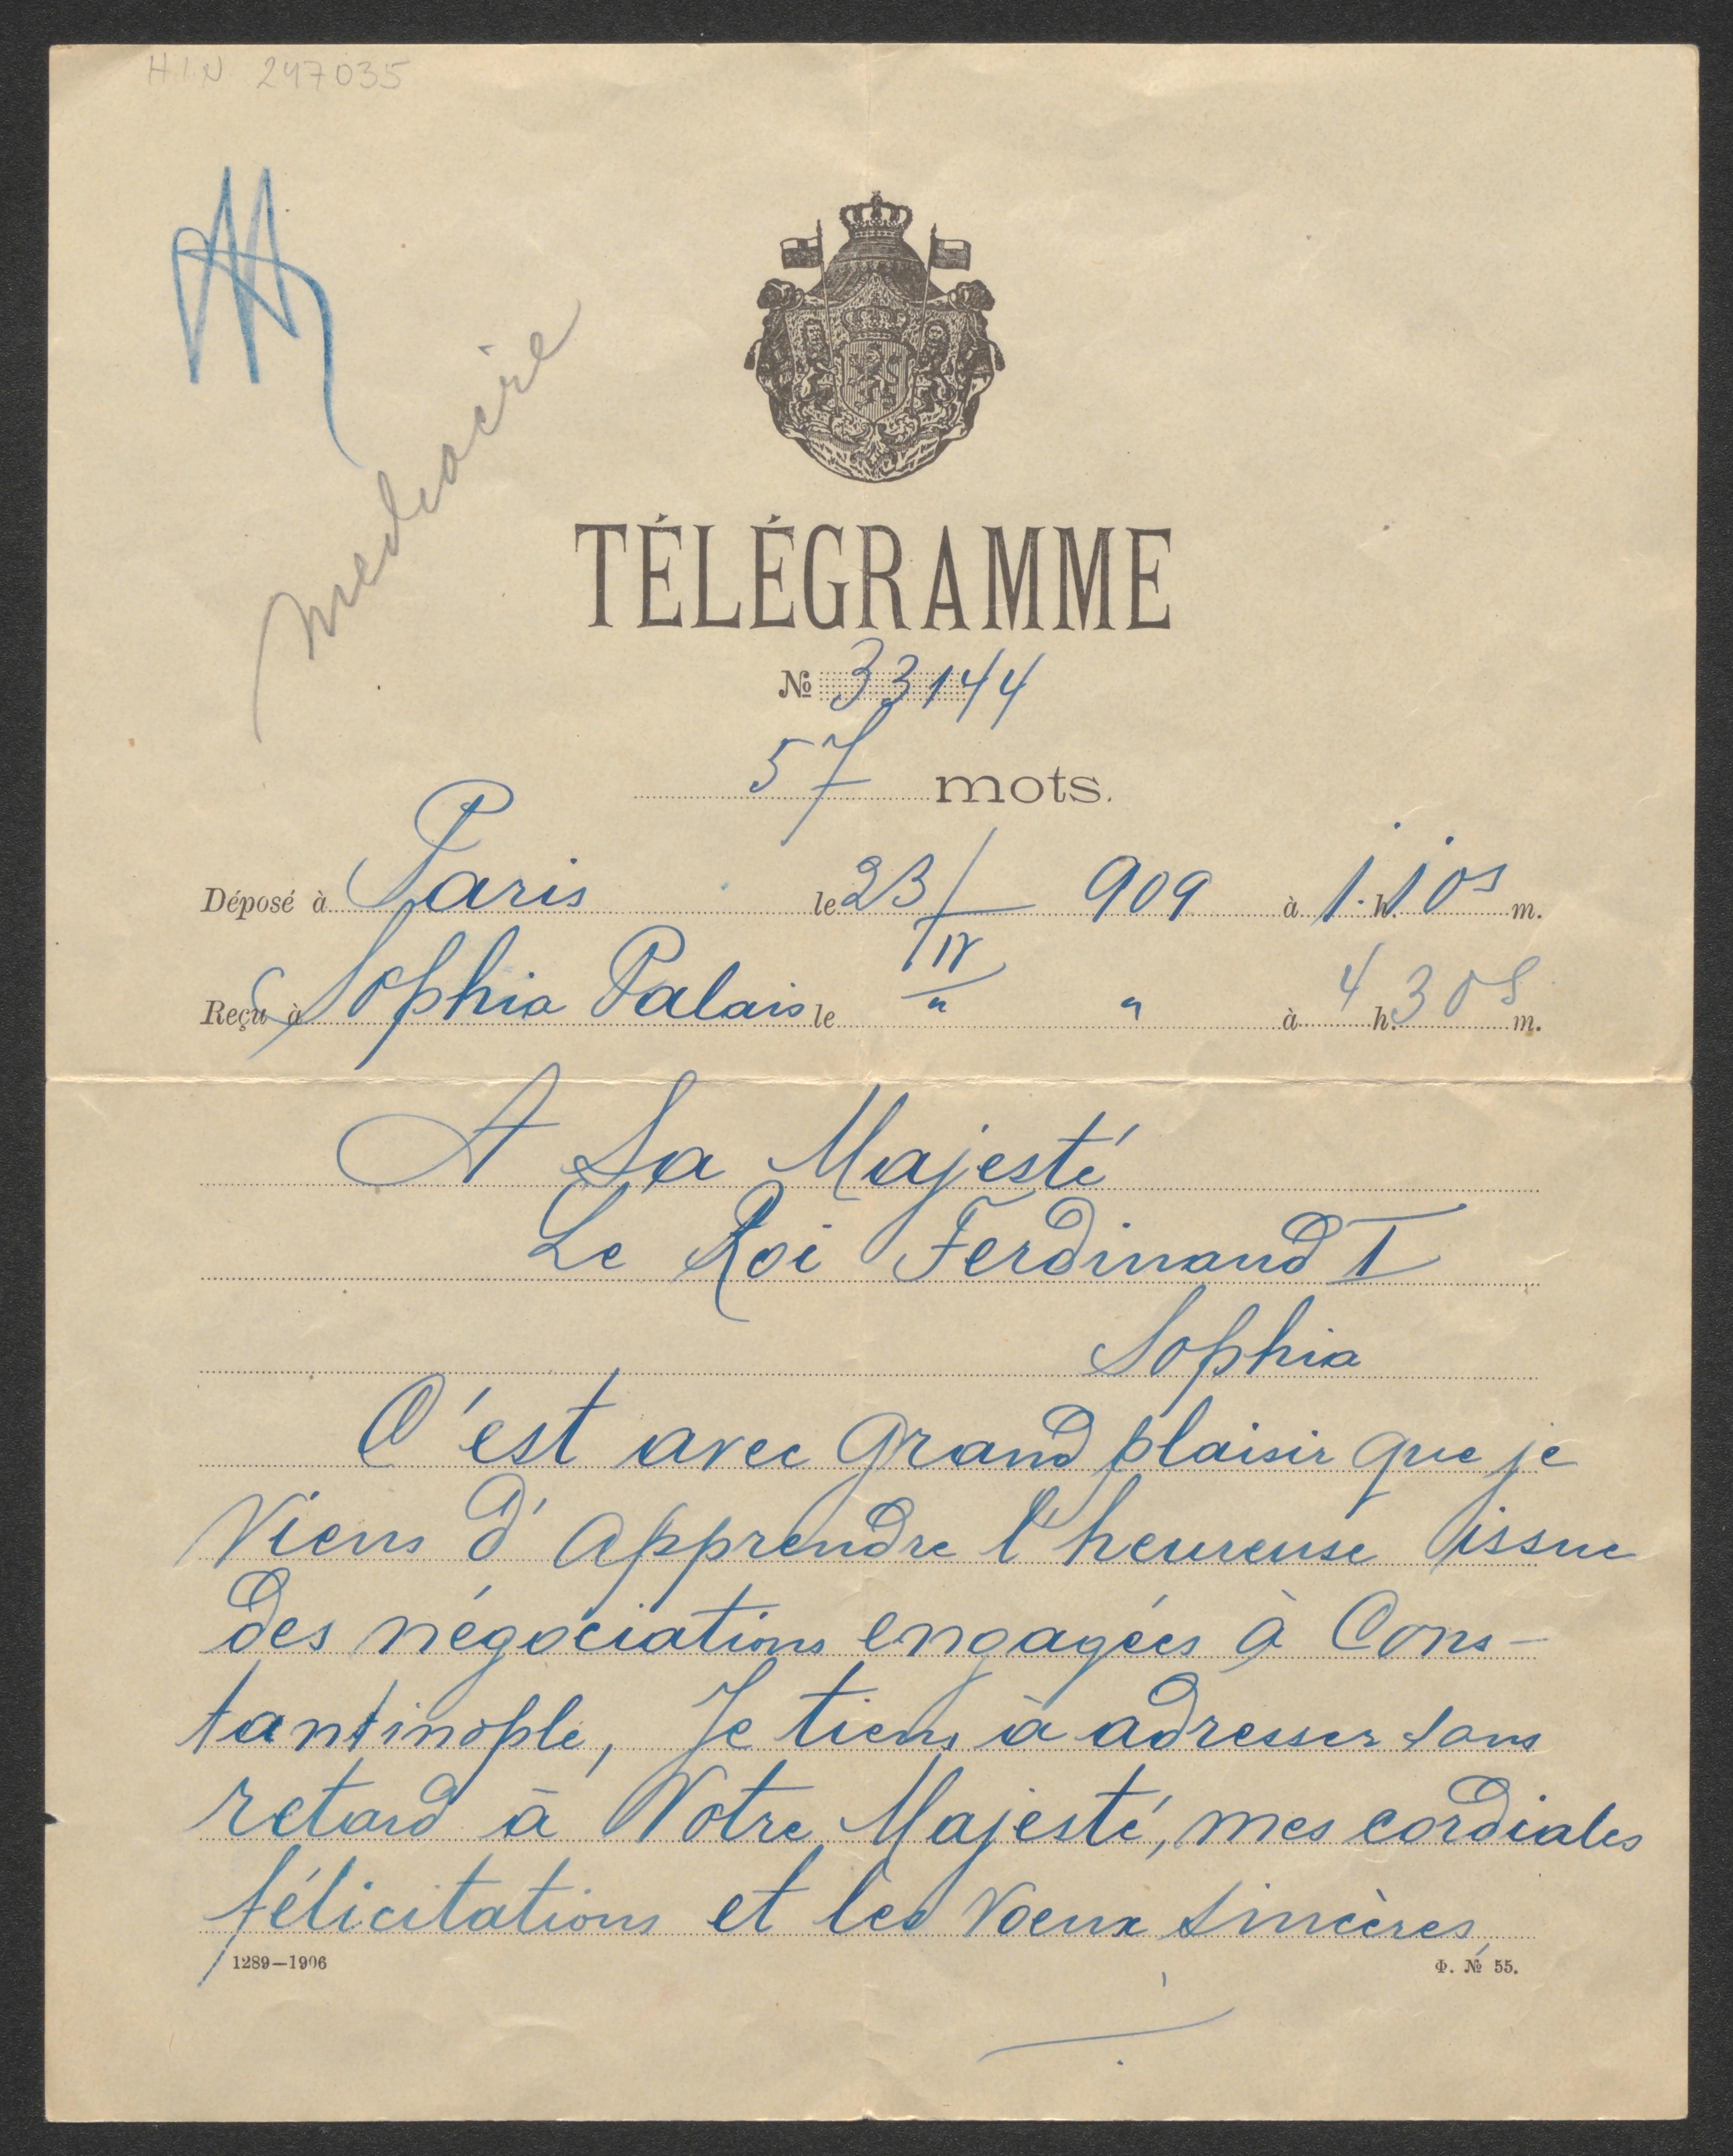 H.I.N. 247035
Mediocire
TÉLÉGRAMME
№ 33144
57 mots.
Déposé à Paris le 23/IV 909 à 1 h. 10 s m.
Reçu à Sophia Palais le " " à 4 h. 30 s m.
A Sa Majesté
Le Roi Ferdinand I
Sophia
C'est avec grand plaisir que je
viens d'apprendre l'heureuse issue
des négociations engagées à Cons-
tantinople, Je tiens à adresser sans
retard à Votre Majesté, mes cordiales
félicitations et les voeux sincères,
1289—1906
Ф. № 55.